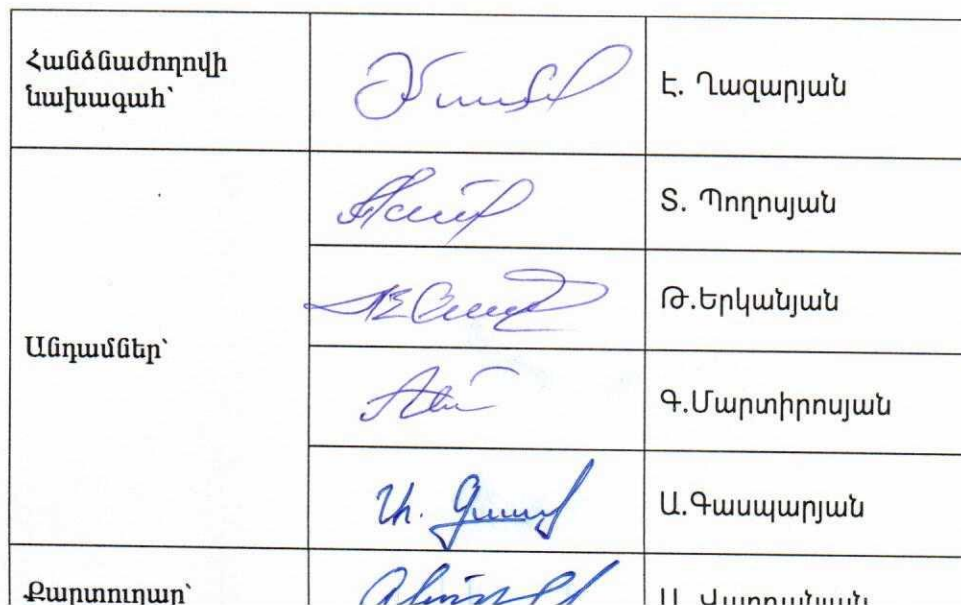 Հանձնաժողովի
նախագահ՝
Է. Ղազարյան
Անդամներ՝
Տ. Պողոսյան
Թ.Երկանյան
Գ.Մարտիրոսյան
Ա.Գասպարյան
Քարտուղար՝
Ա. Վարդանյան